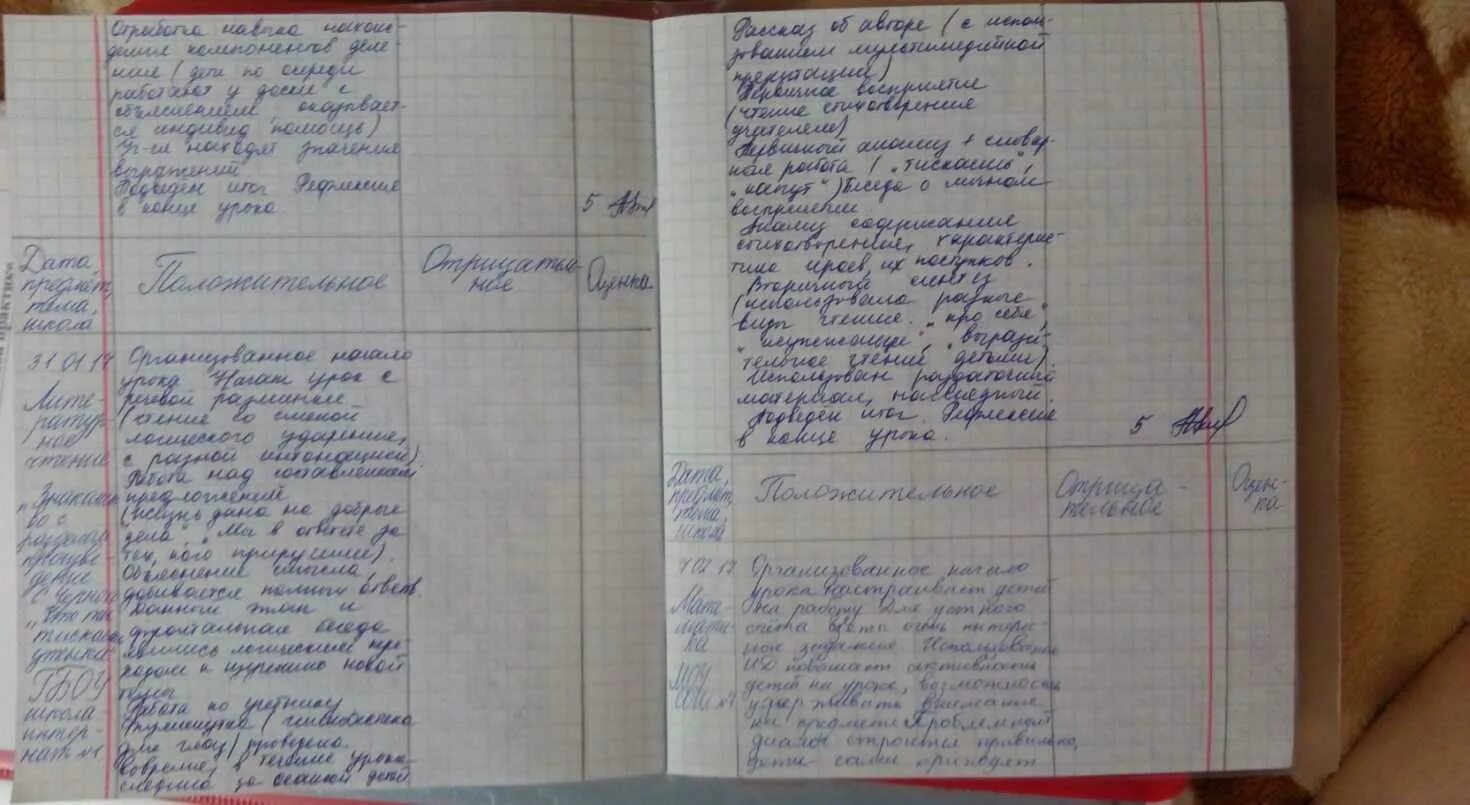 Отработка навыка нахож-
дения компонентов деле-
ния (дети по очереди
работают у доски с
объяснением, оказывает-
ся индивид. помощь)
Уч-ся находят значения
выражений.
Подведен итог. Рефлексия
в конце урока
5
Дата,
предмет,
тема,
школа
Положительное
Отрицатель-
ное
Оценка
31.01.17
Лите-
ратур-
ное
чтение
"Знакомст-
во с
произве-
дение
С. Черного
"Что ты
тискаешь
утенка"
ГБОУ
школа-
интер-
нат №1
Организованное начало
урока. Начат урок с
речевой разминки
(чтение со сменой
логического ударения,
с разной интонацией)
Работа над составлением
предложений
(Жизнь дана на добрые
дела", "Мы в ответе за
тех, кого приручили).
Объяснение смысла,
добивается полных ответ.
Данный этап и
фронтальная беседа
явились логическим пере-
ходом к изучению новой
темы
Работа по учебнику
Физминутка (гимнастика
для глаз) проведена
вовремя, в течение урока
следила за осанкой детей
Рассказ об авторе (с испол-
зованием мультимедийной
презентации)
Первичное восприятие
(чтение стихотворения
учителем)
Первичный анализ + словар-
ная работа ("тискаешь",
"капут") Беседа о личном
восприятии.
Анализ содержания
стихотворения, характерис-
тика героев, их поступков.
Вторичный синтез
(использовала разные
виды чтения: "про себя",
"вырази-
тельное чтение детьми).
Использован раздаточный
материал, наглядный.
Подведен итог. Рефлексия
в конце урока.
5
Дата,
предмет,
тема,
школа
Положительное
Отрица-
тельное
Оцен-
ка
7.02.17
Мате-
мати-
ка
МОУ
№1
Организованное начало
урока настраивает детей
на работу. Для устного
счёта взяты очень интерес-
ные задания. Использование
повышает активность
детей на уроке, возможность
удерживать внимание
на предмете. Проблемный
диалог строится правильно,
дети сами приходят